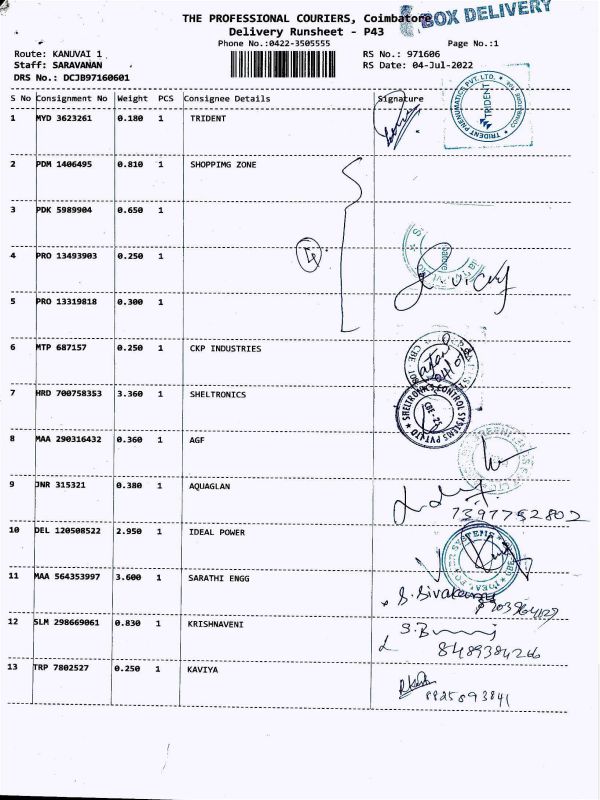 THE PROFESSIONAL COURIERS, Coimbatore
BOX DELIVERY
Delivery Runsheet - P43
Phone No.:0422-3505555
Page No.:1
Route: KANUVAI 1
RS No.: 971606
Staff: SARAVANAN
RS Date: 04-Jul-2022
DRS No.: DCJB97160601
S No Consignment No Weight PCS Consignee Details Signature
1 MYD 3623261 0.180 1 TRIDENT
TRIDENT PNEUMATICS PVT. LTD.
2 PDM 1406495 0.810 1 SHOPPIMG ZONE
3 PDK 5989904 0.650 1
4 PRO 13493903 0.250 1
5 PRO 13319818 0.300 1
6 MTP 687157 0.250 1 CKP INDUSTRIES
7 HRD 700758353 3.360 1 SHELTRONICS
SHELTRONICS CONTROL SYSTEMS PVT LTD
CBE-25
8 MAA 290316432 0.360 1 AGF
9 JNR 315321 0.380 1 AQUAGLAN
7397752802
10 DEL 120508522 2.950 1 IDEAL POWER
11 MAA 564353997 3.600 1 SARATHI ENGG
12 SLM 298669061 0.830 1 KRISHNAVENI
8489384266
13 TRP 7802527 0.250 1 KAVIYA